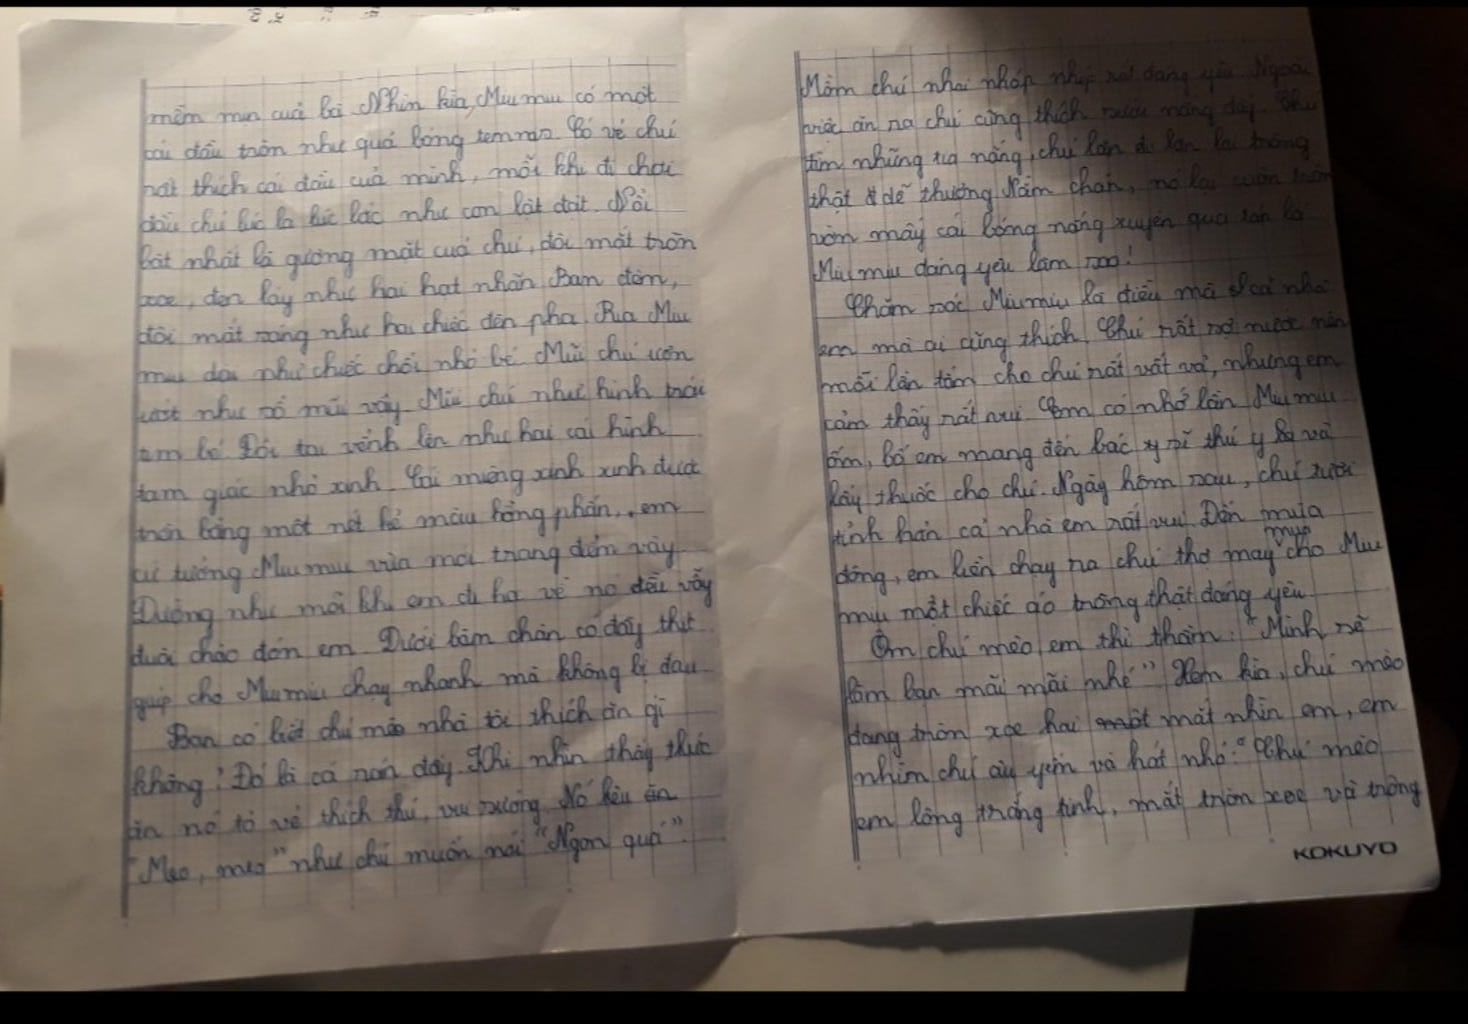 mềm mịn cuả bà Nhìn kìa, Miumiu có một
cái đầu tròn như quả bóng tennan Có vẻ chú
rất thích cái đầu cuả mình, mỗi khi đi chơi
đầu chú lúc la lúc lắc như con lật đật. Nổi
bật nhất là gương mặt cuả chú, đôi mắt tròn
xoe, đen láy như hai hạt nhãn Ban đêm,
đôi mắt sáng như hai chiếc đèn pha Ria Miu
miu dài như chiếc chổi nhỏ bé Mũi chú ươn
ướt như sổ mũi vậy Mũi chú như hình trái
tim bé Đôi tai vểnh lên như hai cái hình
tam giác nhỏ xinh Cái miệng xinh xinh được
bằng một nét kẻ màu hồng phấn, em
cứ tưởng Miumiu vừa mới trang điểm vậy
Dường như mỗi khi em đi họ về nó đều vẫy
đuôi chào đón em Dưới bàn chân có đầy thịt
giúp cho Miumiu chạy nhanh mà không bị đau
Bạn có biết chú mèo nhà tôi thích ăn gì
không? Đó là cá rán đấy. Khi nhìn thấy thức
ăn nó tỏ vẻ thích thú, vui sướng Nó kêu ăn
"Meo, meo" như chú muốn nói "Ngon quá".
Mồm chú nhai nhóp nhép rất đáng yêu Ngoài
việc ăn ra chú cũng thích sưởi nắng đấy Chú
tìm những tia nắng, chú lăn đi lăn lại trông
thật dễ thương Nằm chán, nó lại
vờn mấy cái bóng nắng xuyên qua tán lá
Miumiu đáng yêu làm sao!
Chăm sóc Miumiu là điều mà cả nhà
em mà ai cũng thích Chú rất sợ nước nên
mỗi lần tắm cho chú rất vất vả, nhưng em
cảm thấy rất vui Em có nhớ lần Miumiu
ốm, bố em mang đến bác y sĩ thú y và
lấy thuốc cho chú. Ngày hôm sau, chú
tỉnh hẳn cả nhà em rất vui Đến mùa
đông, em liền chạy ra chú thợ may may cho Miu
miu một chiếc áo trông thật đáng yêu
Ôm chú mèo em thì thầm: "Mình sẽ
làm bạn mãi mãi nhé" Xem kìa, chú mèo
đang tròn xoe hai mắt nhìn em, em
nhìn chú âu yếm và hát nhỏ: "Chú mèo
em lông trắng tinh, mắt tròn xoe và trông
KOKUYO